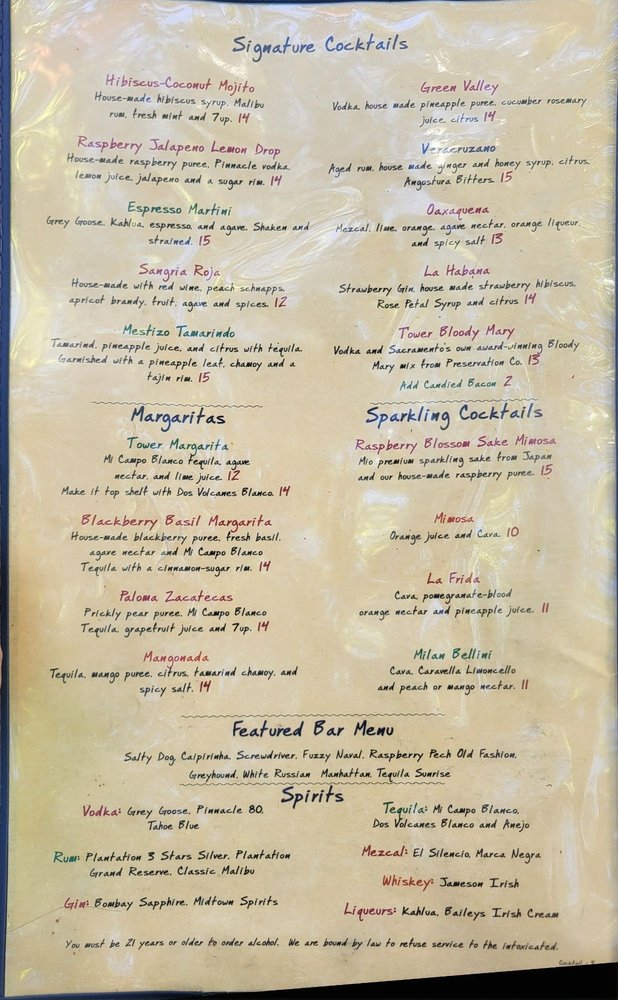 Signature Cocktails
Hibiscus-Coconut Mojito
House-made hibiscus syrup, Malibu
rum, fresh mint and 7up. 14
Raspberry Jalapeno Lemon Drop
House-made raspberry puree, Pinnacle vodka,
lemon juice, jalapeno and a sugar rim. 14
Espresso Martini
Grey Goose, Kahlua, espresso, and agave. Shaken and
strained. 15
Sangria Roja
House-made with red wine, peach schnapps,
apricot brandy, fruit, agave and spices. 12
Mestizo Tamarindo
Tamarind, pineapple juice, and citrus with tequila.
Garnished with a pineapple leaf, chamoy and a
tajin rim. 15
Green Valley
Vodka, house made pineapple puree, cucumber rosemary
juice, citrus 14
Veracruzano
Aged rum, house made ginger and honey syrup, citrus,
Angostura Bitters. 15
Oaxaquena
Mezcal, lime, orange, agave nectar, orange liqueur,
and spicy salt 13
La Habana
Strawberry Gin, house made strawberry hibiscus,
Rose Petal Syrup and citrus 14
Tower Bloody Mary
Vodka and Sacramento's own award-winning Bloody
Mary mix from Preservation Co. 13
Add Candied Bacon 2
Margaritas
Tower Margarita
Mi Campo Blanco tequila, agave
nectar, and lime juice. 12
Make it top shelf with Dos Volcanes Blanco. 14
Blackberry Basil Margarita
House-made blackberry puree, fresh basil,
agave nectar and Mi Campo Blanco
Tequila with a cinnamon-sugar rim. 14
Paloma Zacatecas
Prickly pear puree, Mi Campo Blanco
Tequila, grapefruit juice and 7up. 14
Mangonada
Tequila, mango puree, citrus, tamarind chamoy, and
spicy salt. 14
Sparkling Cocktails
Raspberry Blossom Sake Mimosa
Mio premium sparkling sake from Japan
and our house-made raspberry puree. 15
Mimosa
Orange juice and Cava. 10
La Frida
Cava, pomegranate-blood
orange nectar and pineapple juice. 11
Milan Bellini
Cava, Caravella Limoncello
and peach or mango nectar. 11
Featured Bar Menu
Salty Dog, Caipirinha, Screwdriver, Fuzzy Naval, Raspberry Pech Old Fashion,
Greyhound, White Russian Manhattan, Tequila Sunrise
Spirits
Vodka: Grey Goose, Pinnacle 80,
Tahoe Blue
Rum: Plantation 3 Stars Silver, Plantation
Grand Reserve, Classic Malibu
Gin: Bombay Sapphire, Midtown Spirits
Tequila: Mi Campo Blanco,
Dos Volcanes Blanco and Anejo
Mezcal: El Silencio, Marca Negra
Whiskey: Jameson Irish
Liqueurs: Kahlua, Baileys Irish Cream
You must be 21 years or older to order alcohol. We are bound by law to refuse service to the intoxicated.